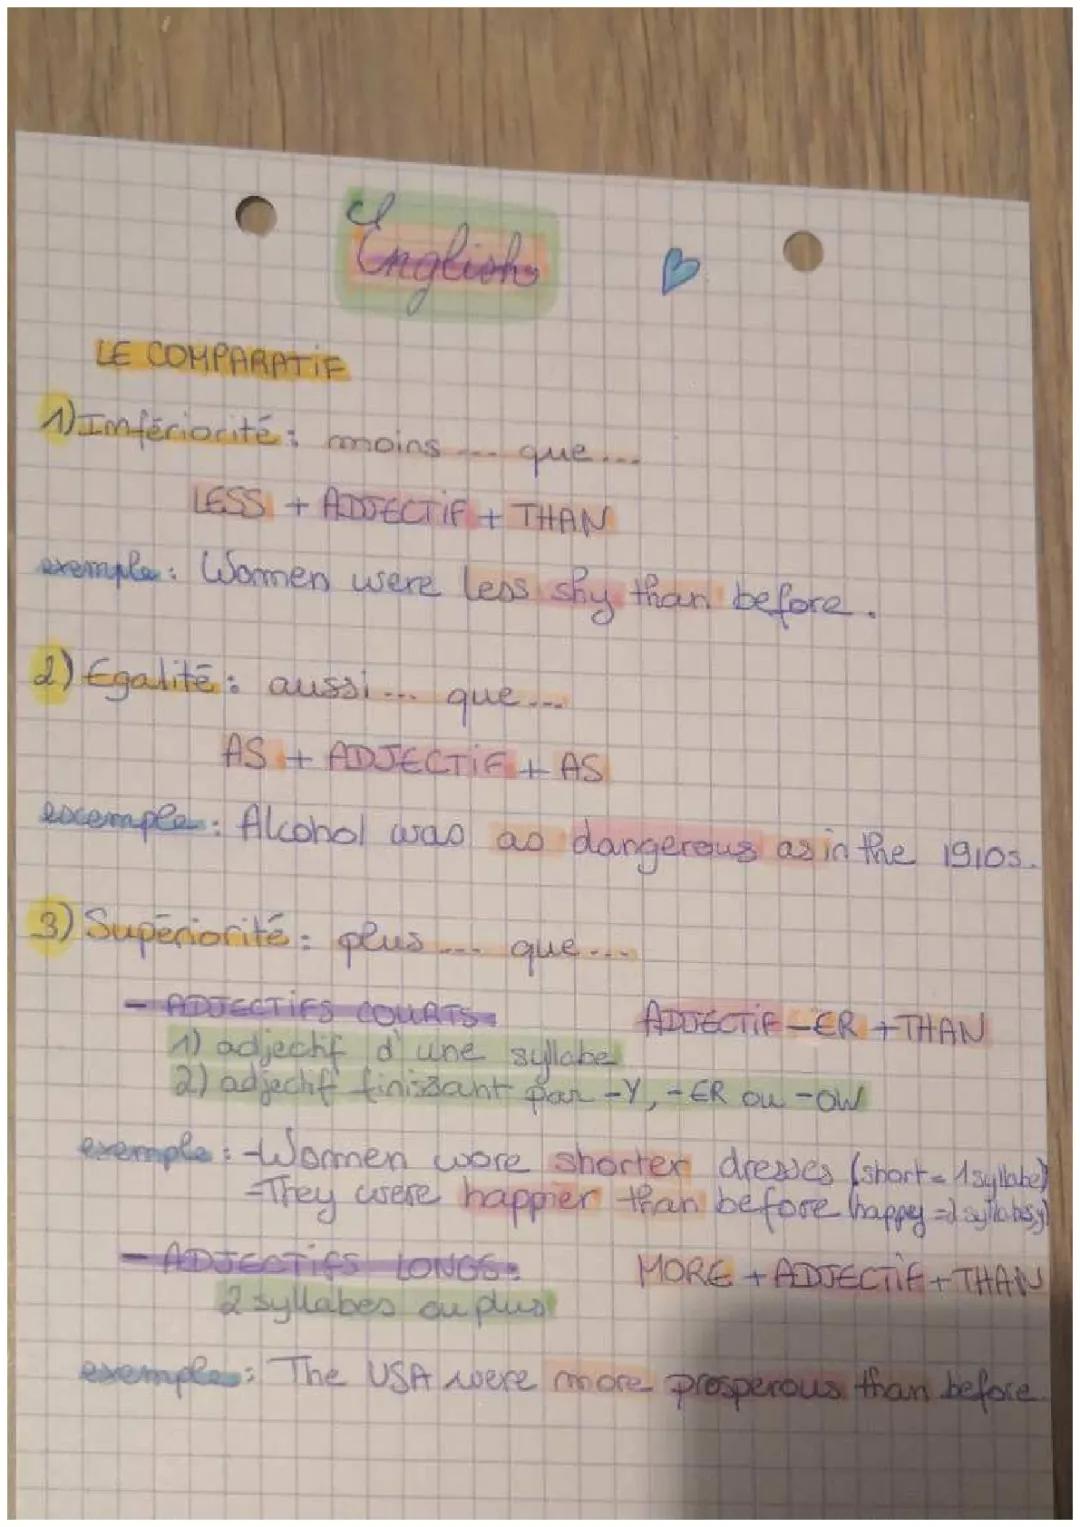 English
LE COMPARATIF
1) Infériorité : moins ... que ...
LESS + ADJECTIF + THAN
exemple : Women were less shy than before.
2) Egalité : aussi ... que ...
AS + ADJECTIF + AS
exemple : Alcohol was as dangerous as in the 1910s.
3) Supériorité : plus ... que ...
- ADJECTIFS COURTS : ADJECTIF -ER + THAN
1) adjectif d'une syllabe
2) adjectif finissant par -Y, -ER ou -OW
exemple : - Women wore shorter dresses (short = 1 syllabe)
- They were happier than before (happy = 2 syllabes y)
- ADJECTIFS LONGS : MORE + ADJECTIF + THAN
2 syllabes ou plus
exemples : The USA were more prosperous than before